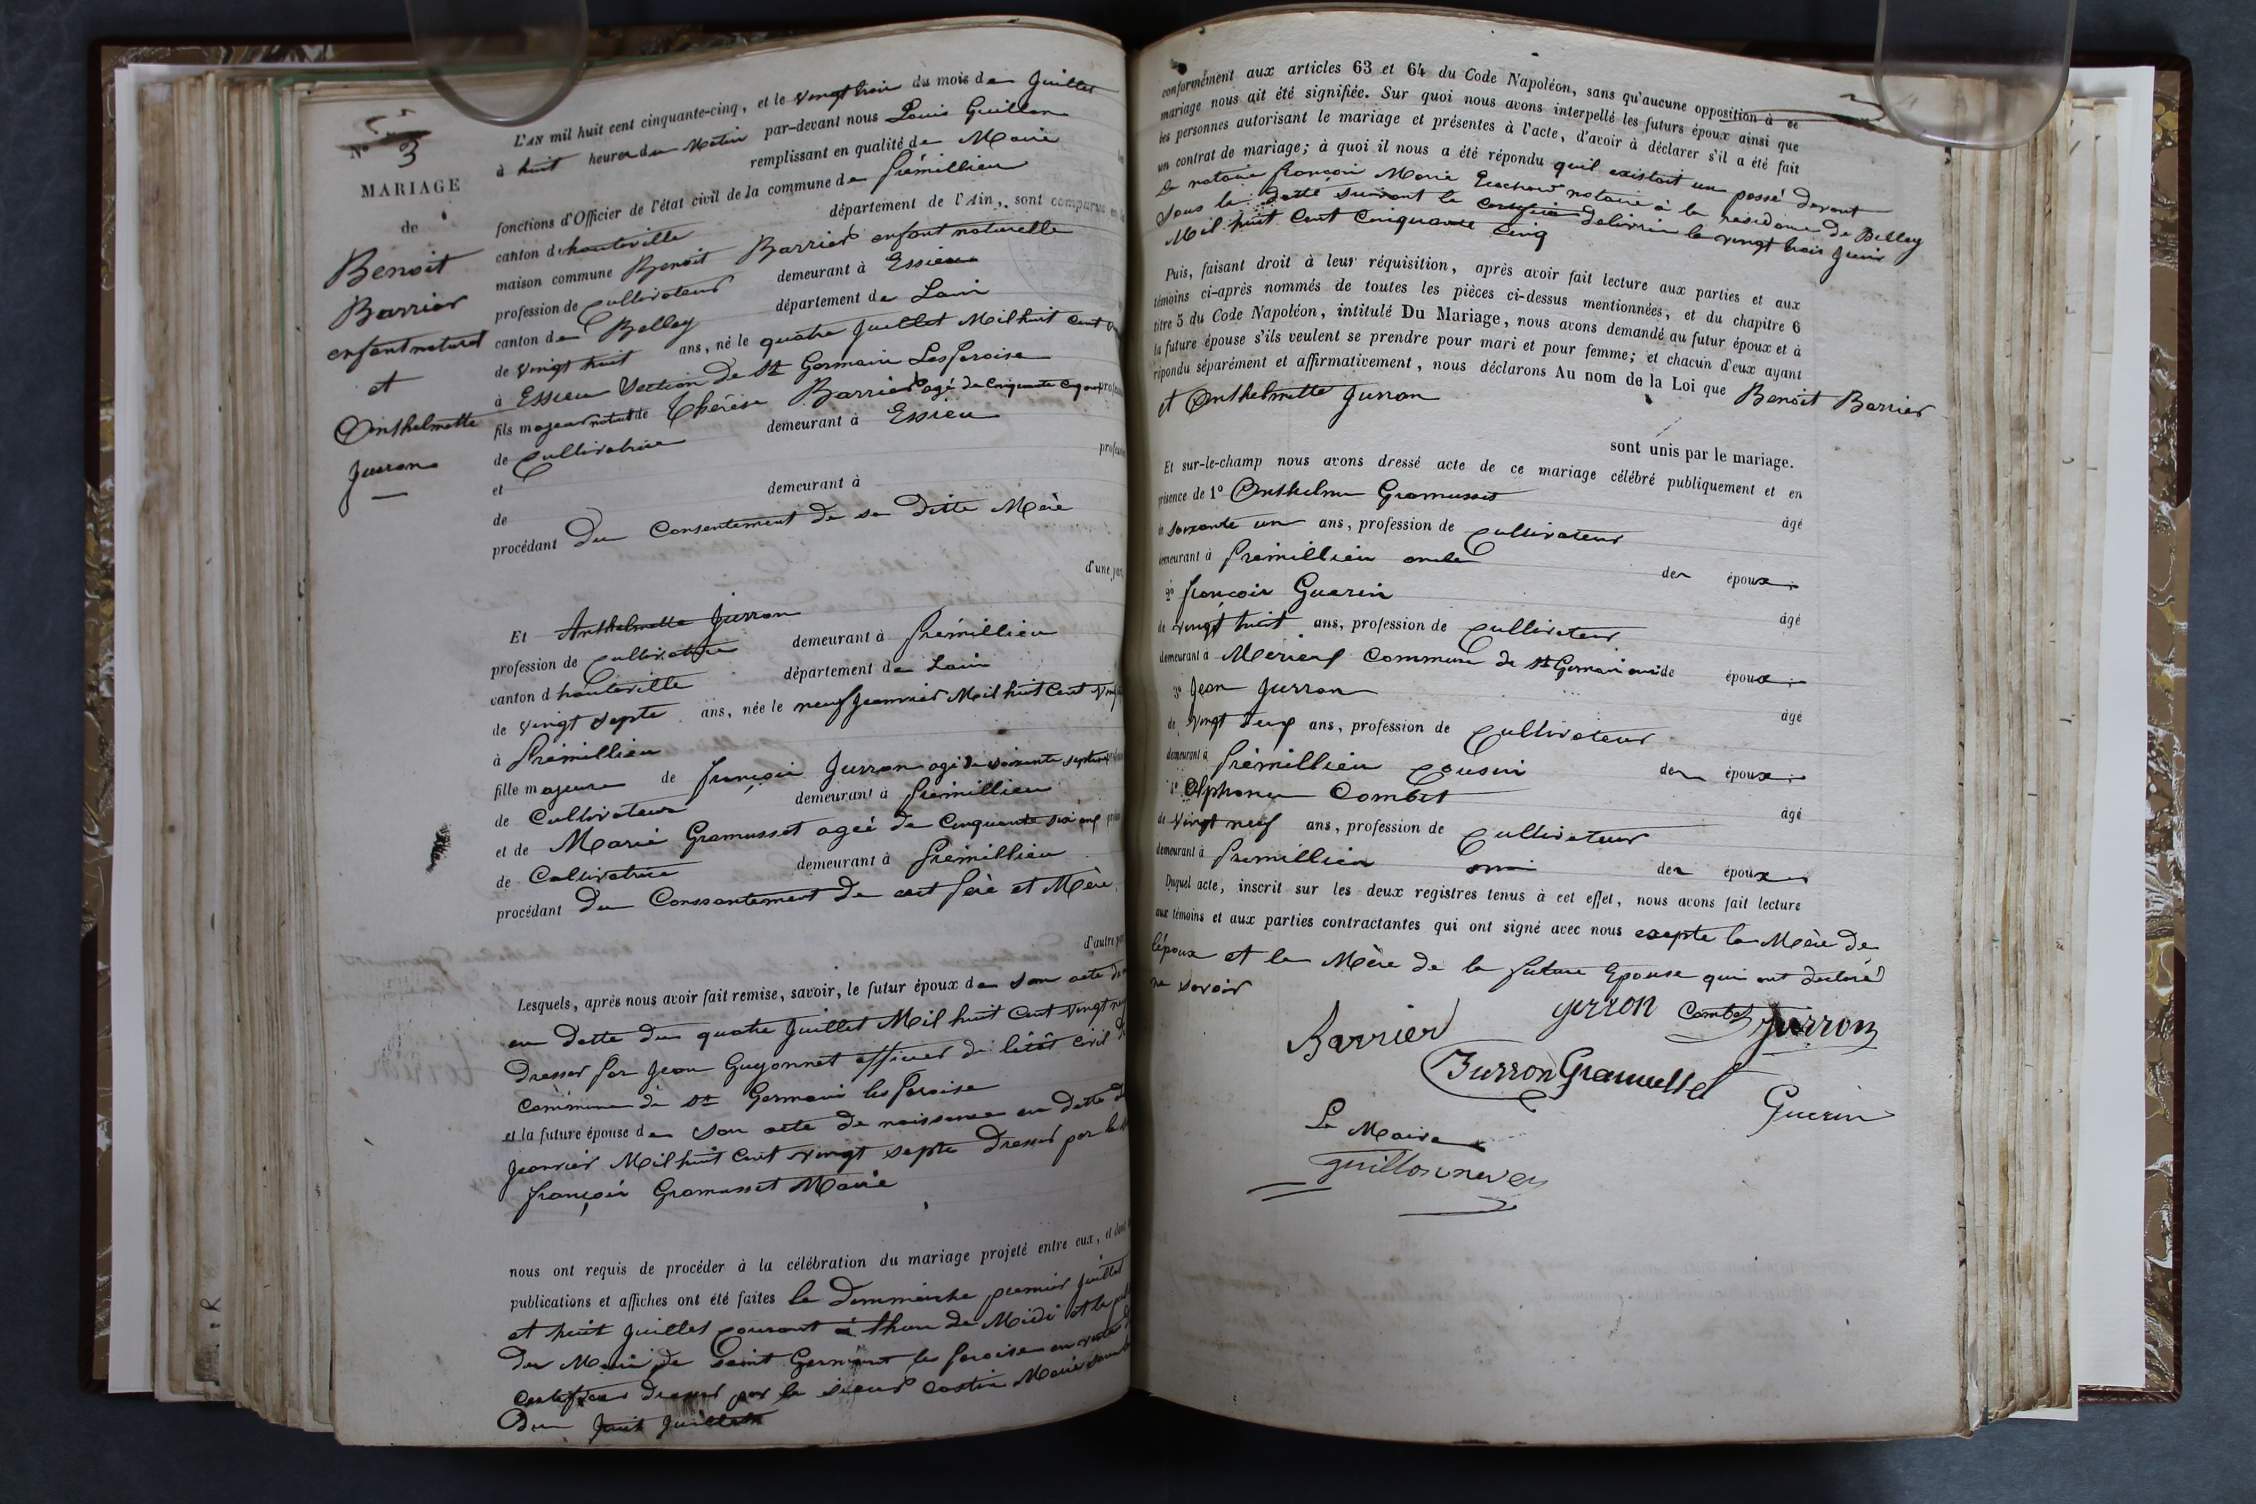 No 3
MARIAGE
de
Benoit
Barrier
enfant naturel
et
Anthelmette
Jurron
L'AN mil huit cent cinquante-cinq, et le vingt trois du mois de Juillet
à huit heures du Matin par-devant nous Louis Guillon
remplissant en qualité de Maire
fonctions d'Officier de l'état civil de la commune de Prémillieu
canton d hauteville département de l'Ain, sont comparus en la
maison commune Benoit Barrier enfant naturelle
profession de Cultivateur demeurant à Essieu
canton de Belley département de Lain
de vingt huit ans, né le quatre Juillet Mil huit Cent
à Essieu Section de St Germain Les paroise
fils majeur naturel de Thérèse Barrier agé de Cinquante Cinq ans profession
de Cultivatrice demeurant à Essieu
et profession
de demeurant à
procédant du Consentement de sa ditte Mère
d'une part,
Et Anthelmette Jurron
profession de Cultivatrice demeurant à Prémillieu
canton d hauteville département de Lain
de vingt septe ans, née le neuf Jeanvier Mil huit Cent vingt
à Prémillieu
fille majeure de françois Jurron agé de soixante septe
de Cultivateur demeurant à Prémillieu
et de Marie Gramusset ageé de Cinquante six ans
de Cultivatrice demeurant à Prémillieu
procédant du Conssentement de père et Mère
d'autre part
Lesquels, après nous avoir fait remise, savoir, le futur époux de son acte de
en datte du quatre Juillet Mil huit Cent vingt
dresser par Jean Guyonnet officier de létât Civil
Commune de St Germain les paroise
et la future épouse de son acte de naissance en datte
Jeanvier Mil huit Cent vingt septe dresser par
françois Gramusset Maire
nous ont requis de procéder à la célébration du mariage projeté entre eux, et dont
publications et affiches ont été faites le dimmanche premier Juillet
et huit Juillet Courant à lheure de Midi et
du Maire de Saint Germain les paroise
Certificat dresser par le sieur Maire
Du huit Juillet
conformément aux articles 63 et 64 du Code Napoléon, sans qu'aucune opposition à ce
mariage nous ait été signifiée. Sur quoi nous avons interpellé les futurs époux ainsi que
les personnes autorisant le mariage et présentes à l'acte, d'avoir à déclarer s'il a été fait
un contrat de mariage; à quoi il nous a été répondu quil existait un passé devant
Le notaire françois Marie notaire à la residence de Belley
Sous la datte suivant le certificat delivrée le vingt trois Juin
Mil huit Cent Cinquante Cinq
Puis, faisant droit à leur réquisition, après avoir fait lecture aux parties et aux
témoins ci-après nommés de toutes les pièces ci-dessus mentionnées, et du chapitre 6
titre 5 du Code Napoléon, intitulé Du Mariage, nous avons demandé au futur époux et à
la future épouse s'ils veulent se prendre pour mari et pour femme; et chacun d'eux ayant
répondu séparément et affirmativement, nous déclarons Au nom de la Loi que Benoit Barrier
et Anthelmette Jurron
sont unis par le mariage.
Et sur-le-champ nous avons dressé acte de ce mariage célébré publiquement et en
présence de 1º Anthelme Gramusset âgé
de soixante un ans, profession de Cultivateur
demeurant à Prémillieu oncle des époux;
2º françois Guerin âgé
de vingt huit ans, profession de Cultivateur
demeurant à Merieux Commune de St Germain ami de époux;
3º Jean Jurron âgé
de vingt deux ans, profession de Cultivateur
demeurant à Prémillieu Cousin des époux;
4º Alphonse Combet âgé
de vingt neuf ans, profession de Cultivateur
demeurant à Prémillieu ami des époux
Duquel acte, inscrit sur les deux registres tenus à cet effet, nous avons fait lecture
aux témoins et aux parties contractantes qui ont signé avec nous exepté la Mère de
lépoux et la Mère de la future Epouse qui ont declaré
ne savoir
Barrier Jurron Combet Jurron
Jurron Gramusset
Guerin
Le Maire